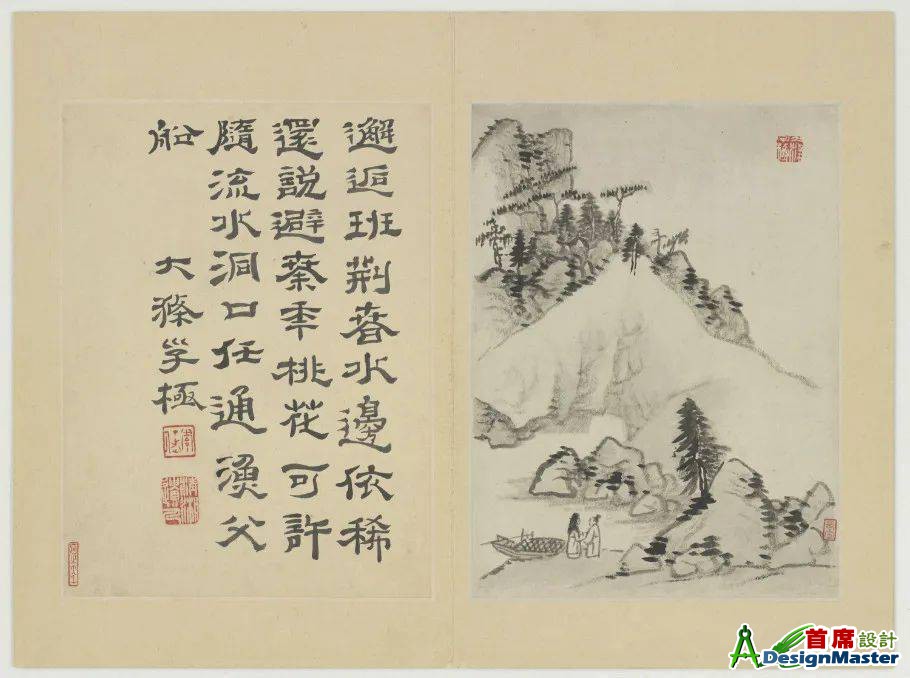 邂逅班荆春水邊依稀
還說避秦年桃花可許
隨流水洞口任通漁父
船
大滌子極
首席設計
DesignMaster